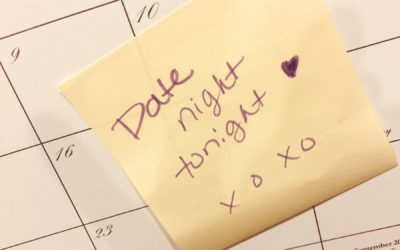 9
10
Date
night
tonight ♥
x o x o
16
23